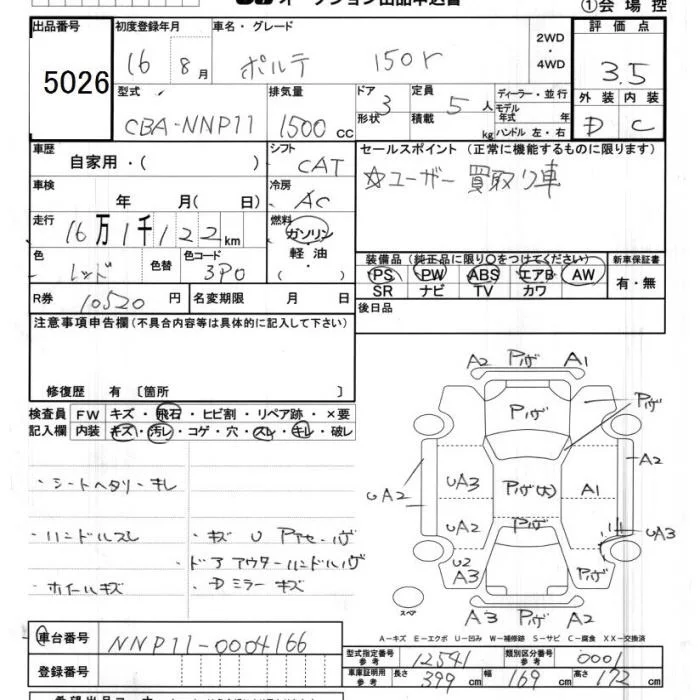 オークション出品申込書 ①会場控
出品番号 5026
初度登録年月 16 8月
車名・グレード ポルテ 150r
2WD・4WD
評価点 3.5
外装 D 内装 C
型式 CBA-NNP11
排気量 1500cc
ドア 3 形状
定員 5人 積載 kg
ディーラー・並行
モデル年式 年
ハンドル 左・右
車歴 自家用・( )
シフト CAT
車検 年 月( 日)
冷房 AC
走行 16万1千122km
燃料 ガソリン 軽油 ・( )
色 レッド 色替
色コード 3P0
R券 10520円
名変期限 月 日
セールスポイント (正常に機能するものに限ります)
☆ユーザー買取り車
装備品 (純正品に限り○をつけてください)
PS PW ABS エアB AW
SR ナビ TV カワ
新車保証書 有・無
後日品
注意事項申告欄(不具合内容等は具体的に記入して下さい)
修復歴 有〔箇所 〕
検査員記入欄
FW キズ・飛石・ヒビ割・リペア跡・×要
内装 キズ・汚レ・コゲ・穴・スレ・キレ・破レ
・シートヘタリ キレ
・ハンドルスレ
・ホイールキズ
・キズ U Pヤセ・ハゲ
・ドアアウターハンドルハゲ
・Dミラーキズ
A2 Pハゲ A1
Pハゲ
Pハゲ
A2
UA3 Pハゲ(大) A1
UA2
UA2 Pハゲ
UA3
U2
A3
Pハゲ
A3 Pハゲ A2
スペア
A−キズ E−エクボ U−凹み W−補修跡 S−サビ C−腐食 XX−交換済
車台番号 NNP11-0004166
登録番号
型式指定番号 参考 12541
類別区分番号 参考 0001
車庫証明用 参考 長さ 399cm 幅 169cm 高さ 172cm